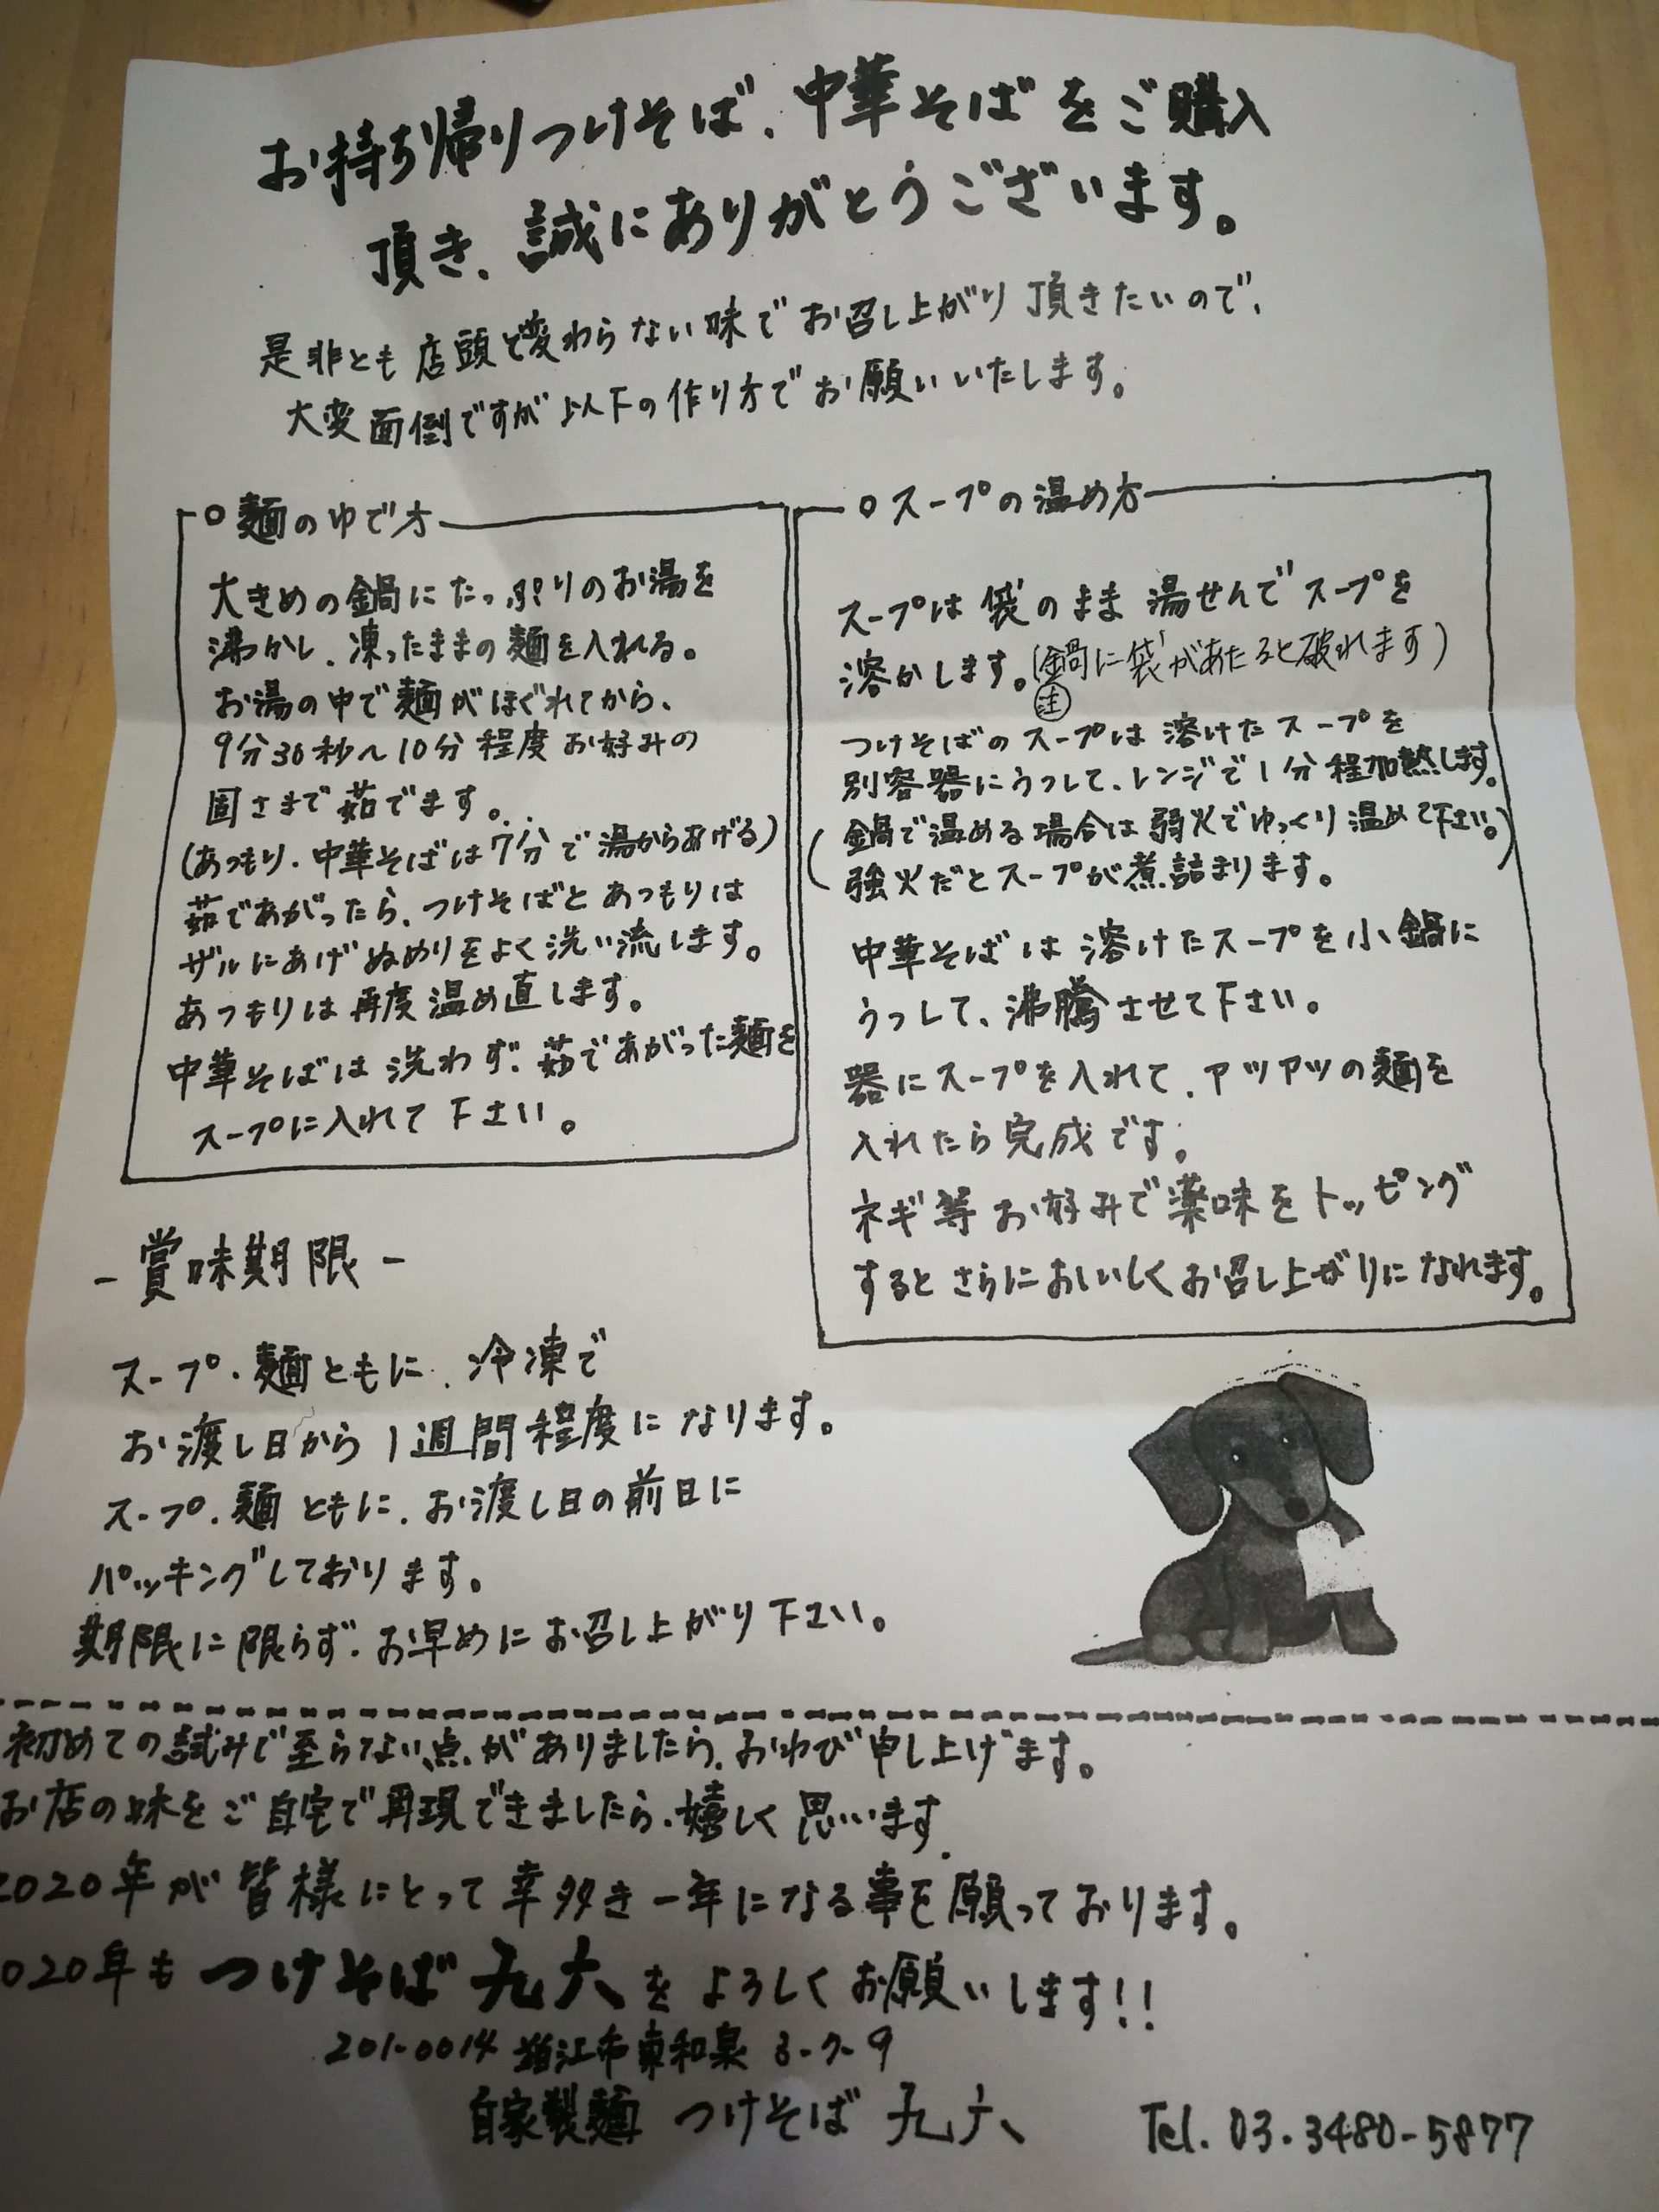 お持ち帰りつけそば、中華そばをご購入
頂き、誠にありがとうございます。
是非とも店頭と変わらない味でお召し上がり頂きたいので、
大変面倒ですが以下の作り方でお願いいたします。
○麺のゆで方
大きめの鍋にたっぷりのお湯を
沸かし、凍ったままの麺を入れる。
お湯の中で麺がほぐれてから、
9分30秒〜10分程度お好みの
固さまで茹でます。
(あつもり・中華そばは7分で湯からあげる)
茹であがったら、つけそばとあつもりは
ザルにあげぬめりをよく洗い流します。
あつもりは再度温め直します。
中華そばは洗わず、茹であがった麺を
スープに入れて下さい。
○スープの温め方
スープは袋のまま湯せんでスープを
溶かします。(鍋に袋があたると破れます)
注
つけそばのスープは溶けたスープを
別容器にうつして、レンジで1分程加熱します。
(鍋で温める場合は弱火でゆっくり温めて下さい。)
強火だとスープが煮詰まります。
中華そばは溶けたスープを小鍋に
うつして、沸騰させて下さい。
器にスープを入れて、アツアツの麺を
入れたら完成です。
ネギ等お好みで薬味をトッピング
するとさらにおいしくお召し上がりになれます。
-賞味期限-
スープ・麺ともに、冷凍で
お渡し日から1週間程度になります。
スープ・麺ともに、お渡し日の前日に
パッキングしております。
期限に限らず、お早めにお召し上がり下さい。
初めての試みで至らない点がありましたら、おわび申し上げます。
お店の味をご自宅で再現できましたら、嬉しく思います。
2020年が皆様にとって幸多き一年になる事を願っております。
020年もつけそば九六をよろしくお願いします!!
201-0014 狛江市東和泉 3-7-9
自家製麺 つけそば 九六 Tel. 03-3480-5877